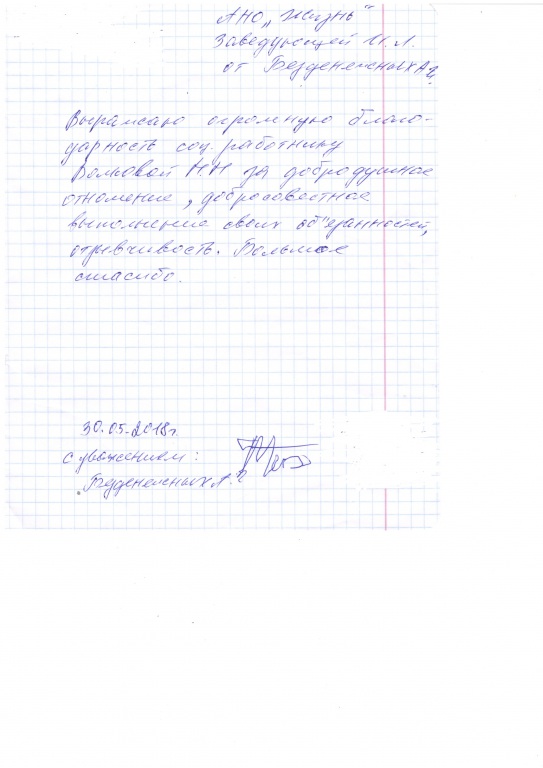 АНО „Жизнь"
Заведующей И. Л.
от Безденежных А.И.
Выражаю огромную благо-
дарность соц. работнику
Волковой Н.Н за добродушное
отношение, добросовестное
выполнение своих об"язанностей,
отзывчивость. Большое
спасибо.
30.05.2018г.
С уважением:
Безденежных А.И